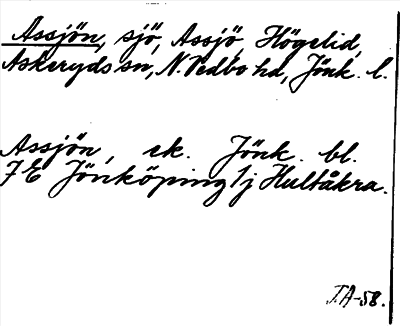 Assjön, sjö, Assjö, Högelid,
Askeryds sn, N. Vedbo hd, Jönk. l.
Assjön, ek. Jönk. bl.
7E Jönköping 1j Hultåkra.
T.A-58.